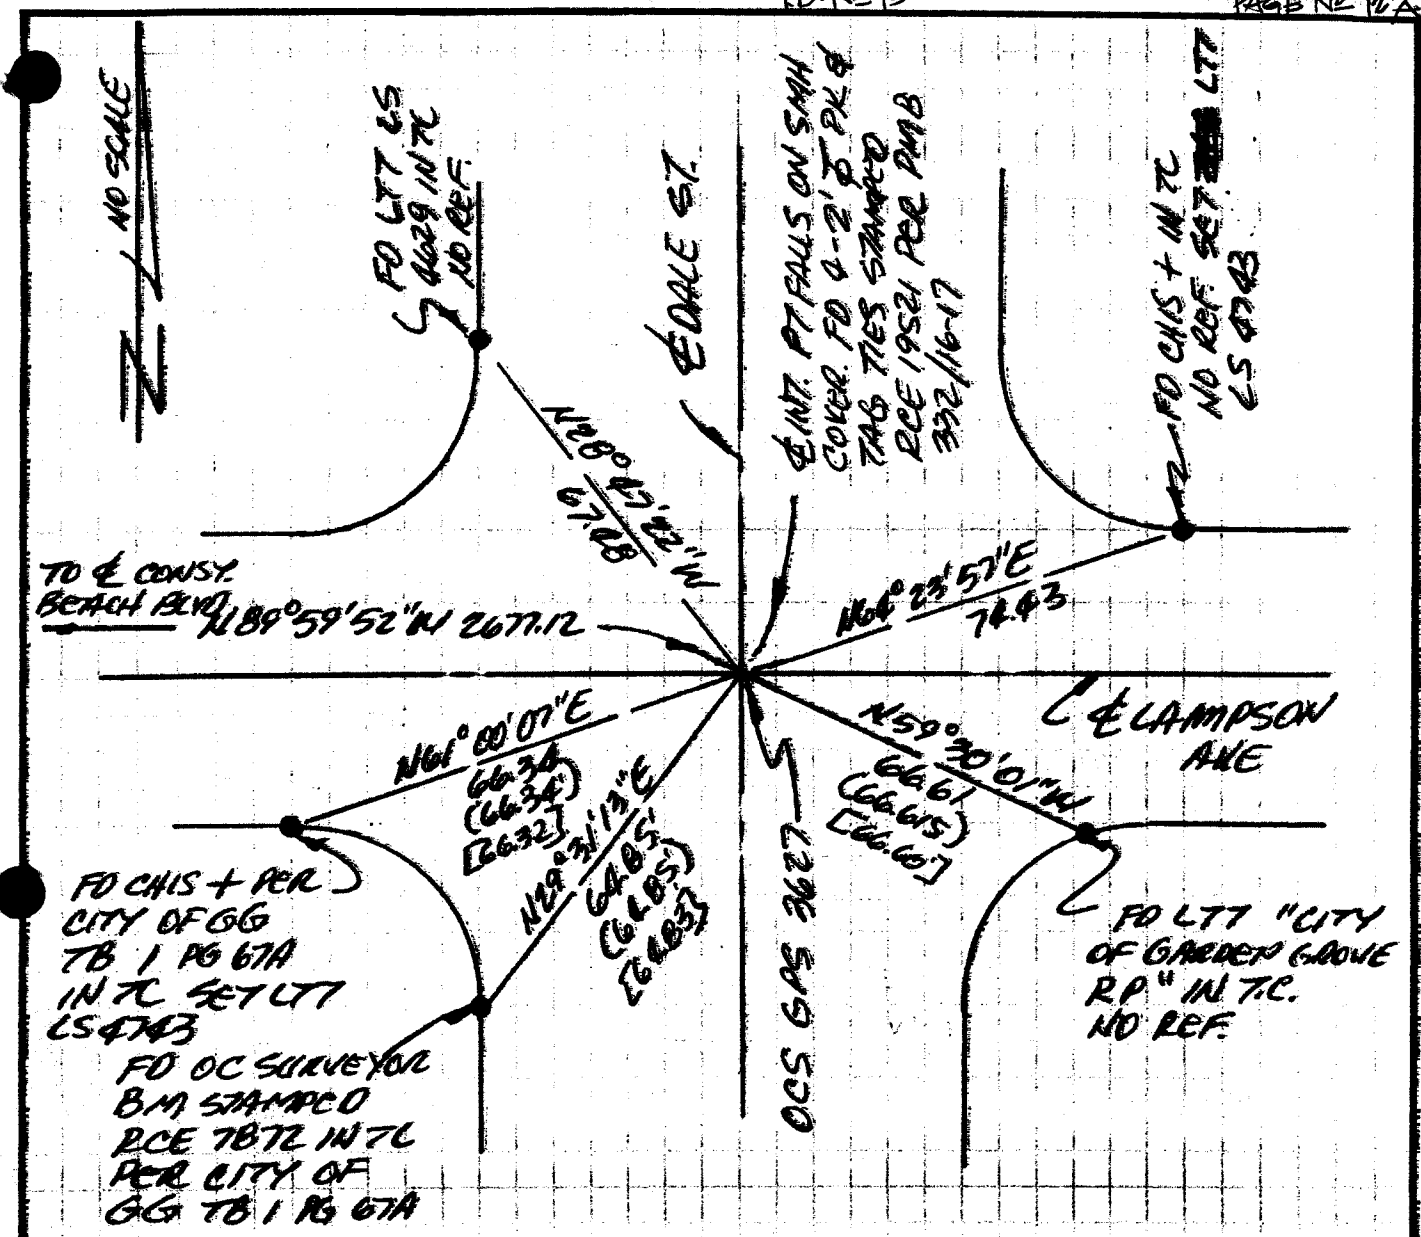 PAGE Nº 12A
NO SCALE
N
FD LTT LS
4629 IN TC
NO REF.
℄ DALE ST.
℄ INT. PT FALLS ON SMH
COVER. FD 4-2' ⌀ PK &
TAG TIES STAMPED
RCE 19521 PER PMB
332/16-17
FD CHIS + IN TC
NO REF. SET LTT
LS 4743
N28° 47' 22" W
67.98
TO ℄ CONSY.
BEACH BLVD.
N89°59'52"W 2677.12
N64° 23' 57" E
74.43
℄ LAMPSON
AVE
N61° 00' 07" E
66.34
(66.34')
[66.32]
N29° 31' 13" E
64.85'
(64.85')
[64.83]
N59° 30' 01" W
66.61
(66.615)
[66.60']
OCS GPS 3627
FD CHIS + PER
CITY OF GG
TB 1 PG 67A
IN TC SET LTT
LS 4743
FD OC SURVEYOR
BM STAMPED
RCE 7872 IN TC
PER CITY OF
GG TB 1 PG 67A
FD LTT "CITY
OF GARDEN GROVE
RP" IN T.C.
NO REF.